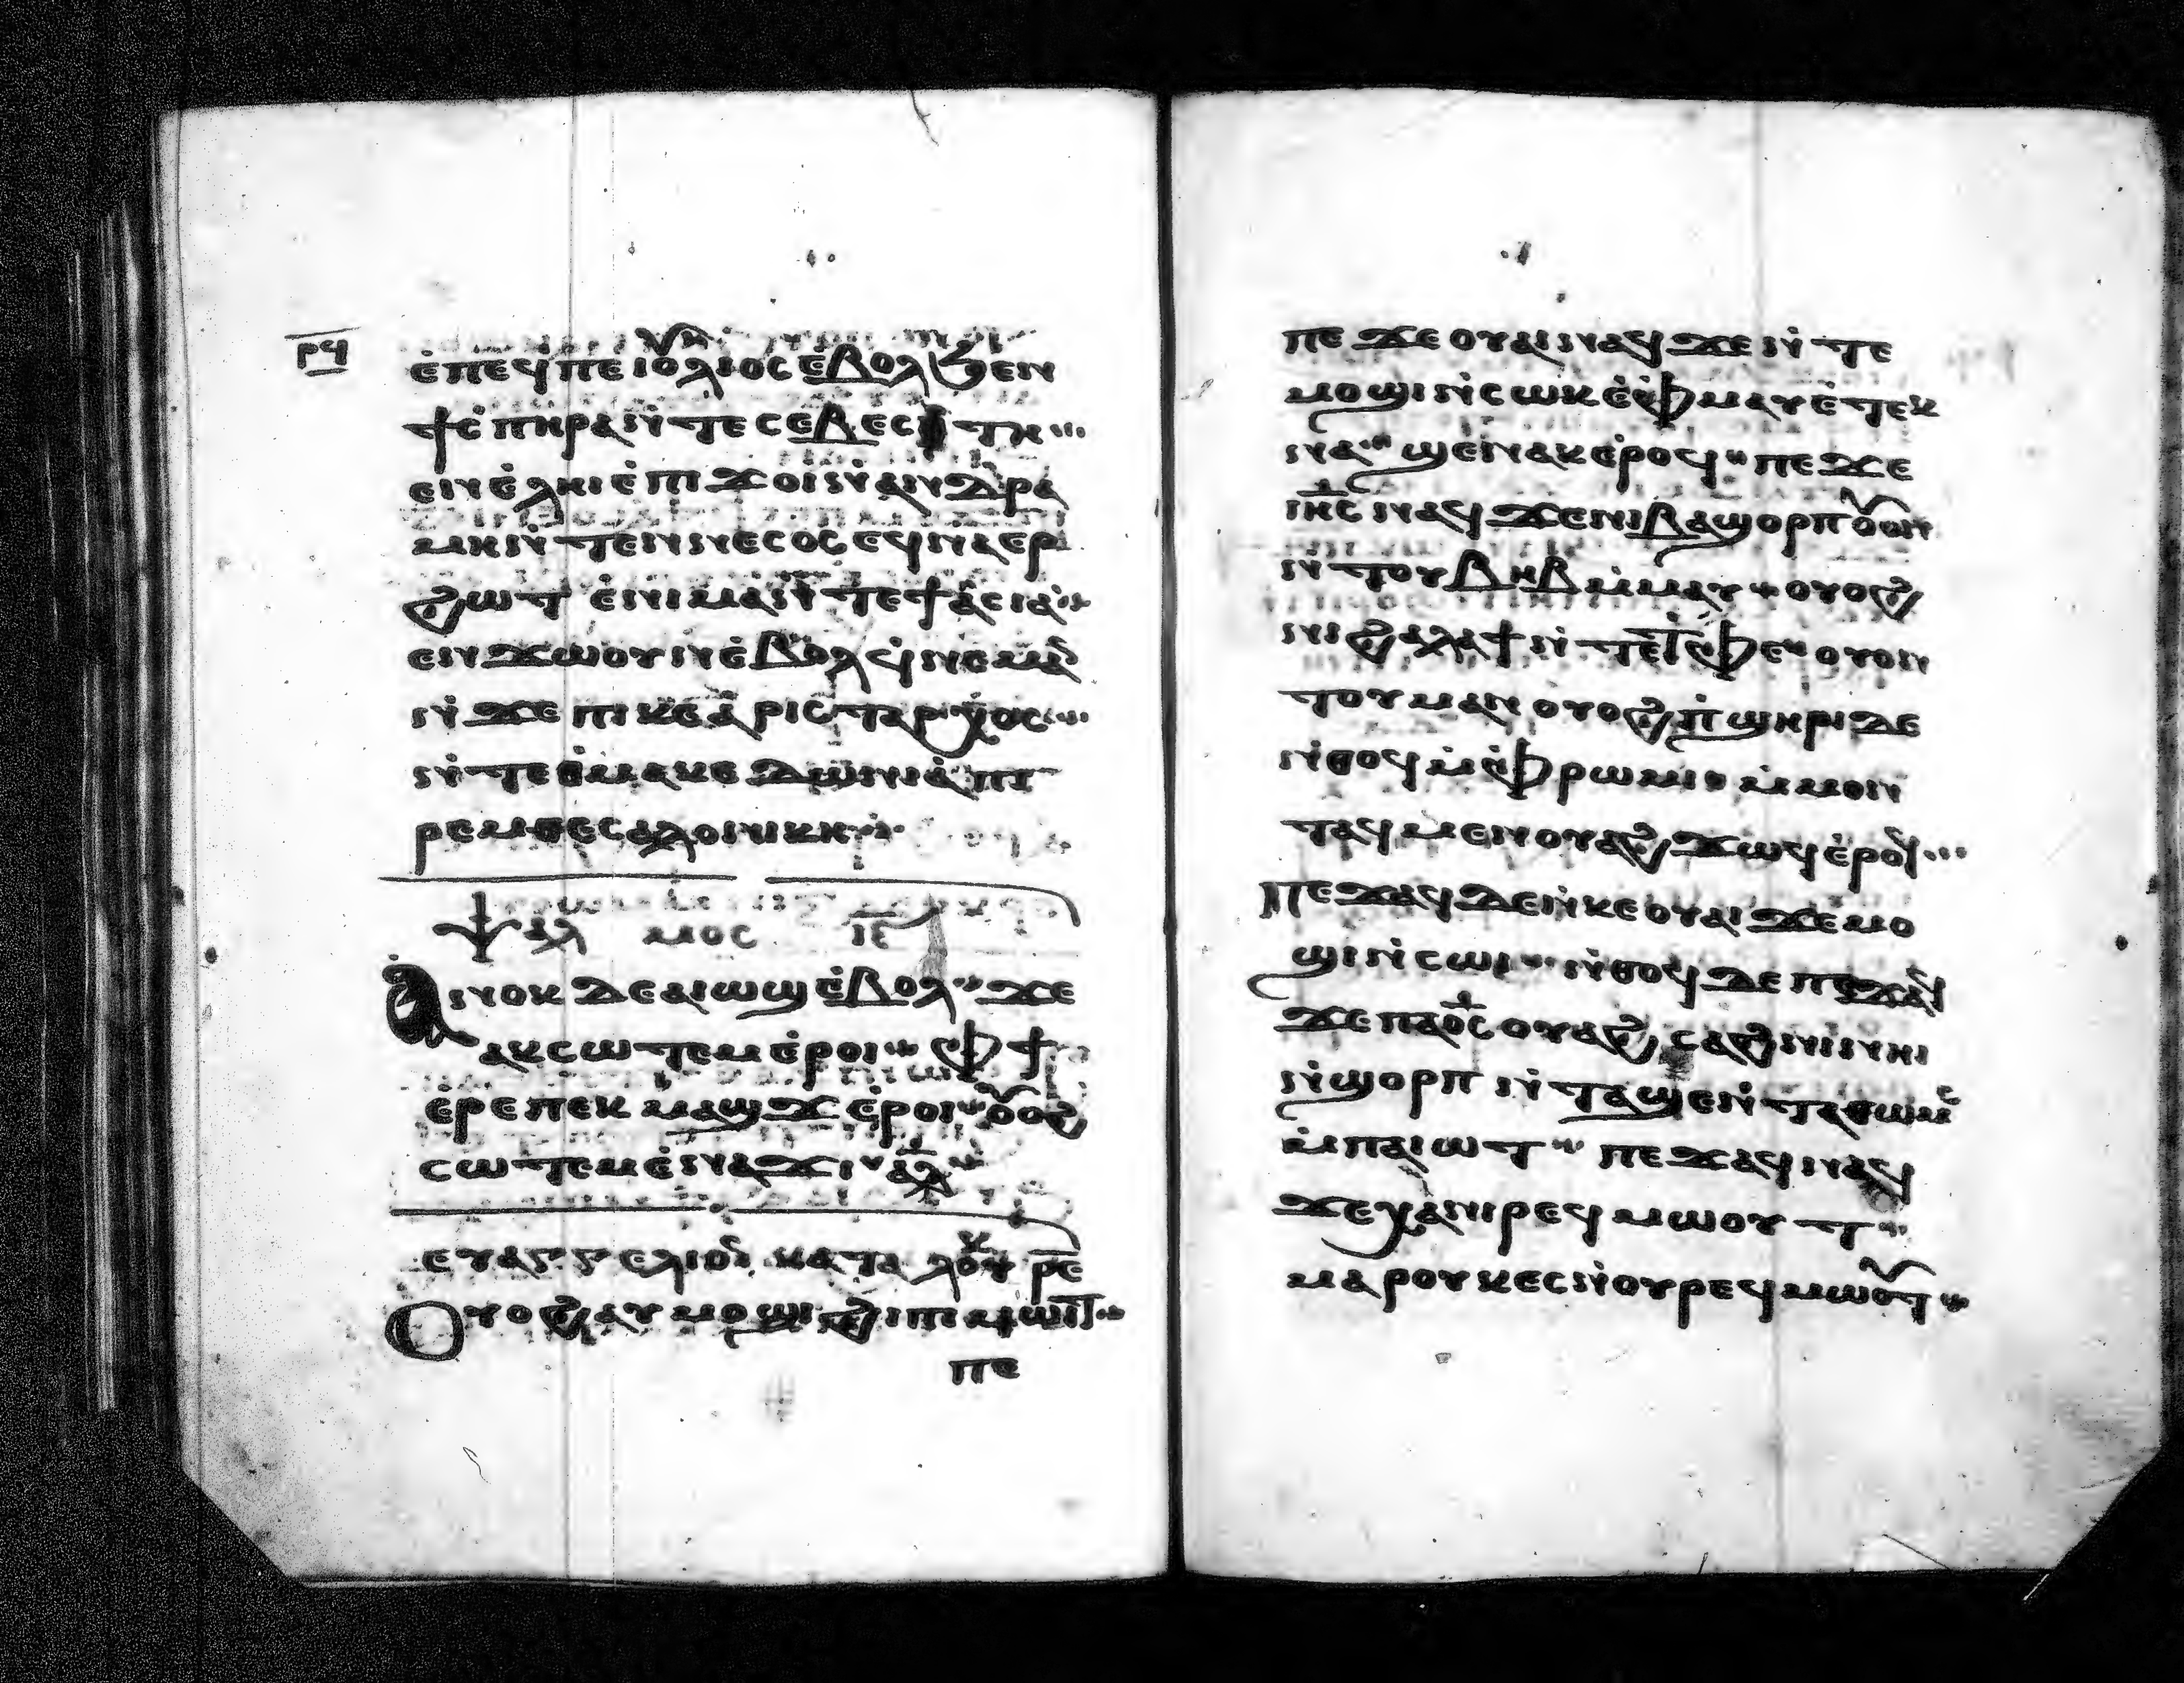 ⲣϥ
ⲉ̇ⲡⲉϥⲡⲉⲓⲟⲗⲓⲟⲥ ⲉ̇ⲃⲟⲗϧⲉⲛ
ϯⲉ̇ⲡⲏⲣⲁ ⲛ̇ⲧⲉ ⲥⲉⲃⲉⲥⲧⲏ
ⲉⲛⲉ̇ⲗⲏⲓ ⲉ̇ⲡϫⲟⲓ ⲛ̇ⲁⲛⲇⲣⲁ
ⲙⲏⲛ̇ⲧⲉⲛⲛⲉⲥⲟⲥ ⲉϥⲛⲁⲉⲣ
ϩⲱⲧ ⲉ̇ⲛⲓⲙⲁ ⲛ̇ⲧⲉ ϯⲁ̇ⲥⲓⲁ
ⲉⲛϫⲱⲟⲩⲛ ⲉ̇ⲃⲟⲗ ϥ̇ⲛⲉⲙⲁⲛ
ⲛ̇ϫⲉ ⲡⲓⲕⲉⲁ̇ⲣⲓⲥⲧⲁⲣⲭⲟⲥ
ⲛ̇ⲧⲉ ⲑ̇ⲙⲁⲕⲉⲇⲱⲛⲓⲁ̇ ⲡⲓ
ⲣⲉⲙⲑⲉⲥⲁⲗⲟⲛⲓⲕⲏ
ⲯⲁⲗⲙⲟⲥ ⲓⲋ
Ⲁⲛⲟⲕ ⲇⲉ ⲁⲓⲱϣ ⲉ̇ⲃⲟⲗ ϫⲉ
ⲁⲕⲥⲱⲧⲉⲙ ⲉ̇ⲣⲟⲓ ⲫϯ
ⲉ̇ⲣⲉⲕ ⲡⲉⲕⲙⲁϣϫ ⲉ̇ⲣⲟⲓ ⲟⲩⲟϩ
ⲥⲱⲧⲉⲙ ⲉ̇ⲛⲁϫⲓ ⲁⲗ
ⲉⲩⲁⲅⲅⲉⲗⲓⲟⲛ ⲕⲁⲧⲁ ⲗⲟⲩⲕ ⲣⲉ
Ⲟⲩⲟϩ ⲁⲩⲙⲟϣⲓ ϩⲓ ⲡⲓⲙⲱⲓⲧ
ⲡⲉ
ⲡⲉϫⲉ ⲟⲩⲁⲓ ⲛⲁϥ ϫⲉ ⲛ̇ⲧⲉ
ⲙⲟϣⲓ ⲛ̇ⲥⲱⲕ ⲉ̇ⲫⲙⲁ ⲉ̇ⲧⲉⲕ
ⲛⲁϣⲉⲛⲁⲕ ⲉ̇ⲣⲟϥ ⲡⲉϫⲉ
ⲓⲏⲥ ⲛⲁϥ ϫⲉ ⲛⲓⲃⲁϣⲟⲣ ⲟⲩⲟⲛ
ⲛ̇ⲧⲟⲩ ⲃⲏⲃ ⲙ̇ⲙⲁⲩ ⲟⲩⲟϩ
ⲛⲓϩⲁⲗⲁϯ ⲛ̇ⲧⲉ ⲧ̇ⲫⲉ ⲟⲩⲟⲛ
ⲧⲟⲩ ⲙⲁⲛ ⲟⲩⲟϩ ⲡ̇ϣⲏⲣⲓ ⲇⲉ
ⲛ̇ⲑⲟϥ ⲙ̇ⲫⲣⲱⲙⲓ ⲙ̇ⲙⲟⲛ
ⲧⲁϥ ⲙⲉⲛⲟⲩⲁϩ ϫⲱϥ ⲉ̇ⲣⲟϥ
Ⲡⲉϫⲁϥ ⲇⲉ ⲛ̇ⲕⲉⲟⲩⲁⲓ ϫⲉ ⲙⲟ
ϣⲓ ⲛ̇ⲥⲱⲓ ⲛ̇ⲑⲟϥ ⲇⲉ ⲡⲉϫⲁϥ
ϫⲉ ⲡⲁⲟ̅ⲥ̅ ⲟⲩⲁϩⲥⲁϩⲛⲓ ⲛⲏⲓ
ⲛ̇ϣⲟⲣⲡ ⲛ̇ⲧⲁϣⲉ ⲛ̇ⲧⲁⲑⲱⲙⲥ
ⲙ̇ⲡⲁⲓⲱⲧ ⲡⲉϫⲁϥ ⲛⲁϥ
ϫⲉ ⲭⲁ ⲛⲓⲣⲉϥⲙⲱⲟⲩⲧ
ⲙⲁⲣⲟⲩⲕⲉⲥ ⲛ̇ⲟⲩⲣⲉϥⲙⲱⲟⲩⲧ